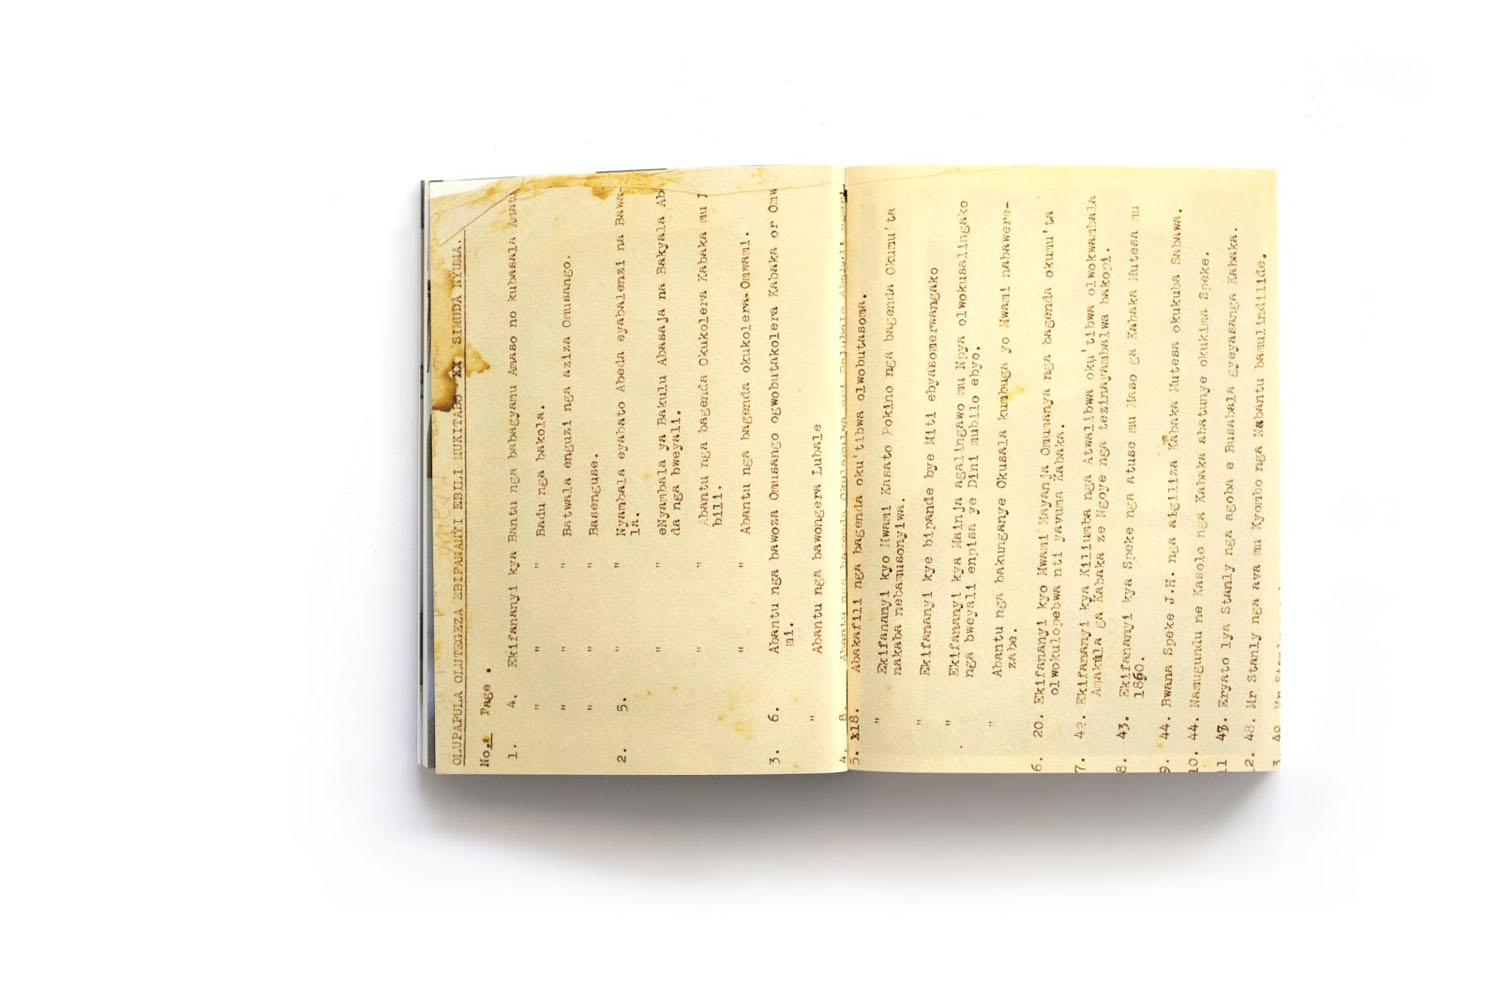 OLUPAPULA OLUTEGEZA EBIFANANYI EBILI MUKITABO XX SIMUDA NYUMA.
No. Page.
1. 4. Ekifananyi kya Bantu nga babagyamu Amaso no kubasala
" " " Badu nga bakola.
" " " Batwala enguzi nga aziza Omusango.
" " " Basenguse.
2. 5. " Nyambala eyabato Abeda eyabalenzi na Bawa-
la.
" " eNyambala ya Bakulu Abasaja na Bakyala Ab
da nga bweyali.
" " Abantu nga bagenda Okukolera Kabaka mu
bili.
" " Abantu nga bagenda okukolera Omwami.
3. 6. Abantu nga bawoza Omusango ogwobutakolera Kabaka or Omw
mi.
" Abantu nga bawongera Lubale
4. 8. Abantu nga bagenda
5. x18. Abakafili nga bagenda oku'tibwa olwobutasoma.
" Ekifananyi kyo Mwami Kasato Pokino nga bagenda Okumu'ta
nakaba nebamusonyiwa.
" Ekifananyi kye bipande bye Miti ebyasomerwangako
" Ekifananyi kya Mainja agalingawo mu Nnya olwokusalingako
nga bweyali empisa ye Dini mubilo ebyo.
" Abantu nga bakunganye Okusala kumbuga yo Mwami nabawere-
zabe.
6. 20. Ekifananyi kyo Mwami Mayanja Omumanya nga bagenda okumu'ta
olwokulopebwa nti yavuma Kabaka.
7. 42. Ekifananyi kya Kiliumba nga Atwalibwa oku'tibwa olwokwambala
Amakula ga Kabaka ze Ngoye nga tezinayambalwa bakopi.
8. 43. Ekifananyi kya Speke nga atuse mu Maso ga Kabaka Mutesa mu
1860.
9. 44. Bwana Speke J.H. nga akgiliza Kabaka Mutesa okukuba Sabawa.
10. 44. Namugundu ne Kasolo nga Kabaka abatumye okukima Speke.
11 47. Eryato lya Stanly nga agoba e Busabala gyeyasanga Kabaka.
12. 48. Mr Stanly nga ava mu Kyombo nga Nabantu bamulindilide.
3. 49